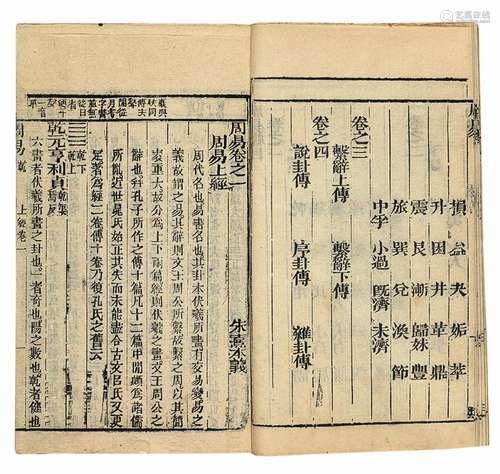 損 益 夬 姤 萃
升 困 井 革 鼎
震 艮 漸 歸妹 豐
旅 巽 兌 渙 節
中孚 小過 既濟 未濟
卷之三
繫辭上傳 繫辭下傳
卷之四
說卦傳 序卦傳 雜卦傳
周易卷之一 朱熹本義
周易上經
周代名也易書名也其卦本伏羲所畫有交易變易之
義故謂之易其辭則文王周公所繫故繫之周以其簡
袠重大故分為上下兩篇經則伏羲之畫文王周公之
辭也并孔子所作之傳十篇凡十二篇中間頗為諸儒
所亂近世晁氏始正其失而未能盡合古文呂氏又更
定著為經二卷傳十卷乃復孔氏之舊云
乾下
乾上
乾元亨利貞
六畫者伏羲所畫之卦也一者奇也陽之數也乾者健也
周易 上經卷一